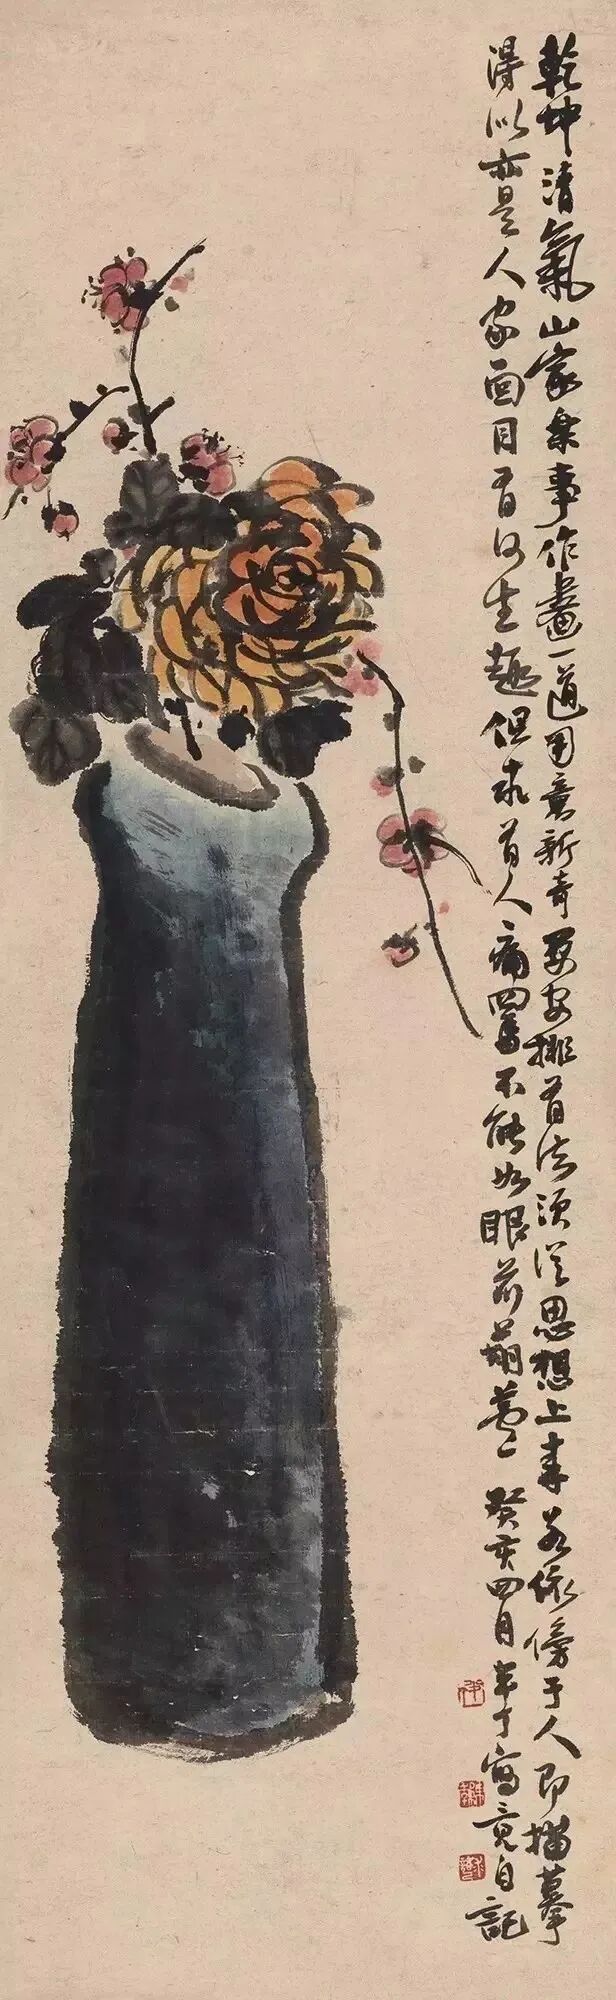 乾坤清氣山家樂事作畫一道用意新奇要安排有法須從思想上來若依傍于人即描摹
得似亦是人家面目有何生趣但求前人痛習不能如眼前葫蘆 癸亥四月年丁寫竟自記